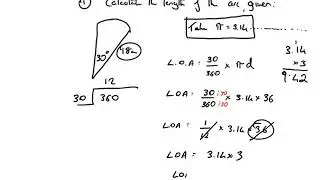 Calculate the length of the arc, given:
Take π = 3.14
30°
18m
12
30 360
L.O.A = 30/360 × π d
3.14
×3
9.42
LOA = 30 ÷30/360 ÷30 × 3.14 × 36
LOA = 1/12 × 3.14 × 36
LOA = 3.14 × 3
LOA